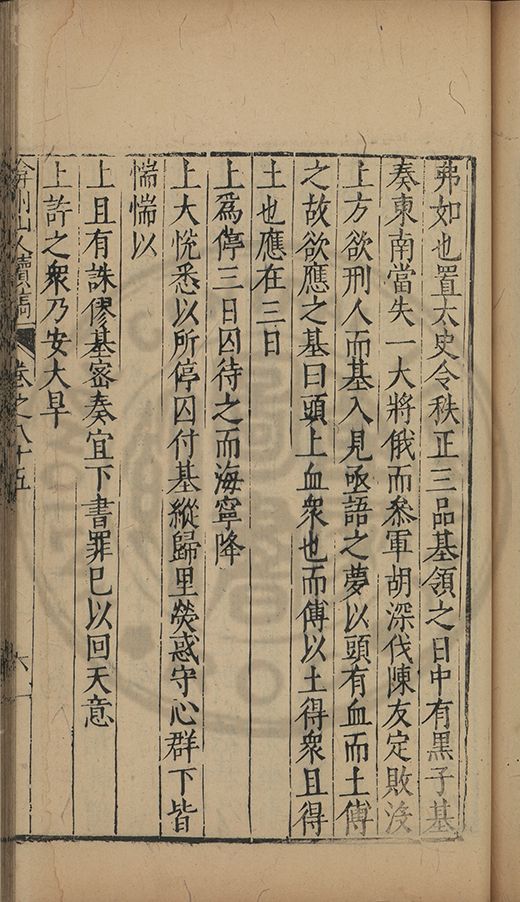 弗如也置太史令秩正三品基領之日中有黑子基
奏東南當失一大將俄而叅軍胡深伐陳友定敗沒
上方欲刑人而基入見亟語之夢以頭有血而土傅
之故欲應之基曰頭上血衆也而傅以土得衆且得
土也應在三日
上爲停三日囚待之而海寧降
上大悅悉以所停囚付基縱歸里熒惑守心群下皆
惴惴以
上且有誅僇基密奏宜下書罪已以回天意
上許之衆乃安大旱
弇州山人續稿 卷之八十五 六